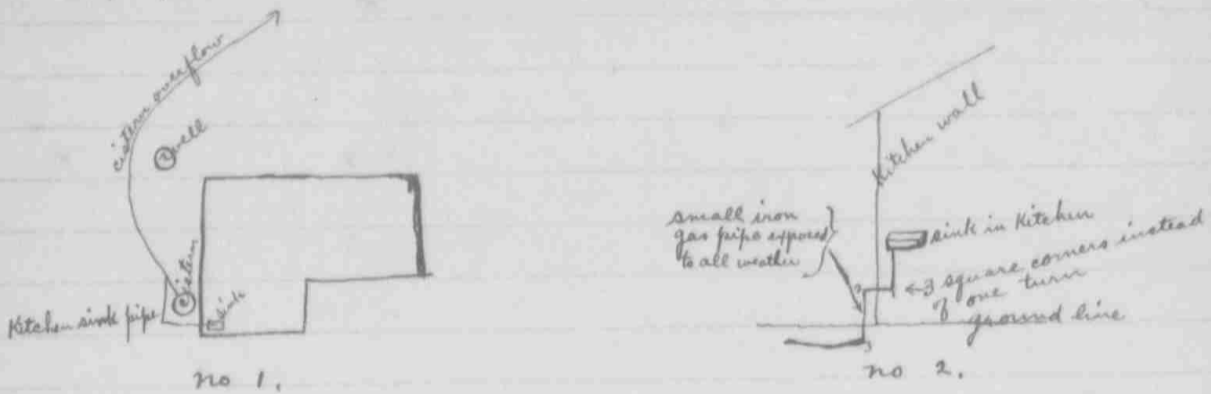 cistern overflow
well
cistern
sink
Kitchen sink pipe
no 1.
Kitchen wall
small iron
gas pipe exposed
to all weather
sink in Kitchen
3 square corners instead
of one turn
ground line
no 2.